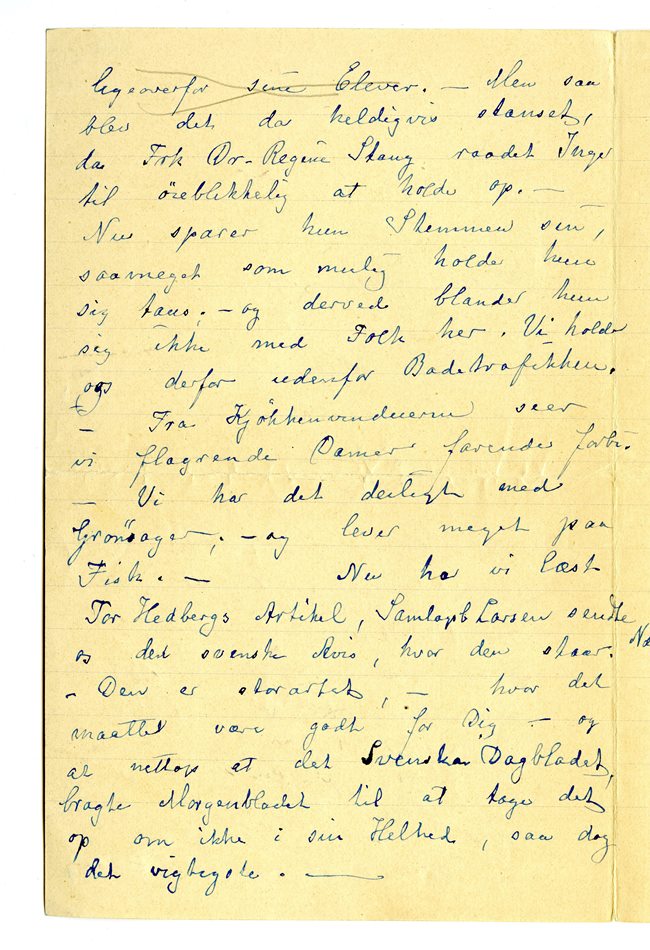 ligeoverfor sine Elever. — Men saa
blev det da heldigvis stanset,
da Frk Dr-Regine Stang raadet Inger
til öieblikkelig at holde op. —
Nu sparer hun Stemmen sin,
saameget som mulig holder hun
sig taus; — og derved blander hun
sig ikke med Folk her. Vi holder
os derfor udenfor Badetrafikken.
— Fra Kjökkenvinduerne seer
vi flagrende Damer farende forbi.
— Vi har det deiligt med
Grönsager; — og lever meget paa
Fisk. — Nu har vi læst
Tor Hedbergs Artikel, Samlagsb Larsen sendte
os den svenske Avis, hvor den staar.
— Den er storartet, — hvor det
maattet være godt for Dig — og
at nettop at det Svenska Dagbladet,
bragte Morgenbladet til at tage det
op om ikke i sin Helhed, saa dog
det vigtigste. —